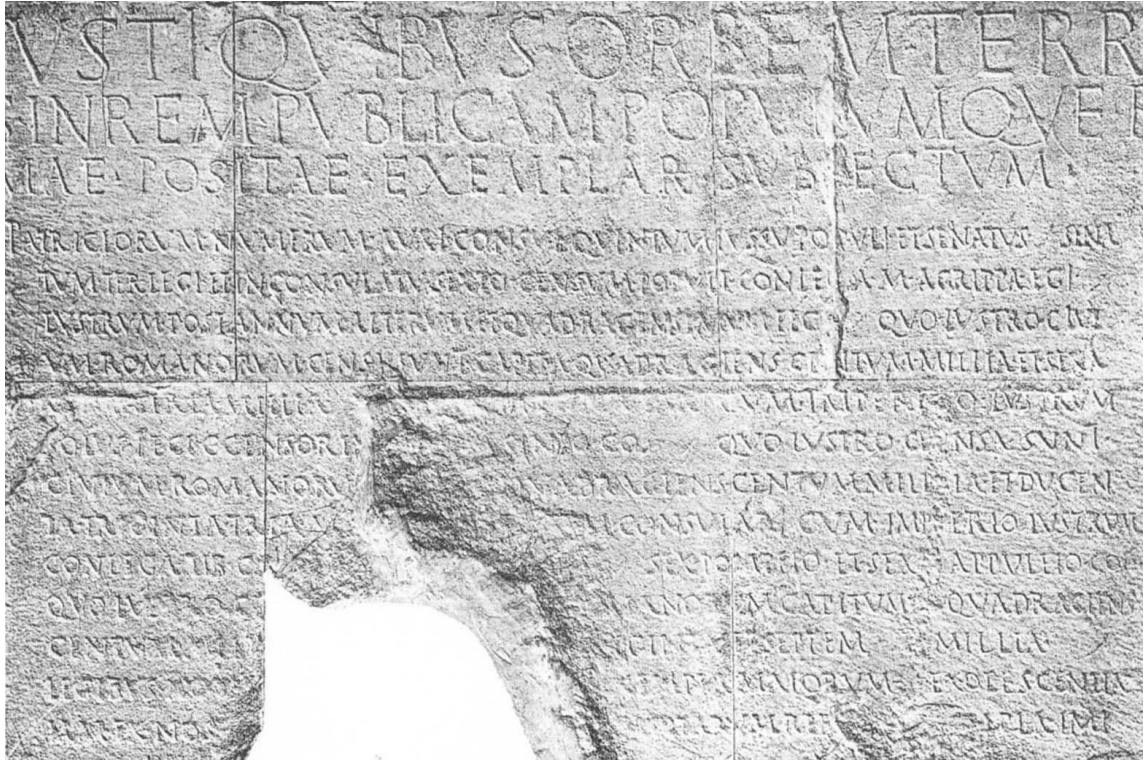 VSTI QVIBVS ORBEM TERR
S IN REM PVBLICAM POPVLVMQVE
NAE·POSITAE·EXEMPLAR·SVBIECTVM·
PATRICIORVM·NVMERVM·AVXI·CONSVL·QVINTVM·IVSSV·POPVLI·ET·SENATVS SENA
TVM·TER·LEGI·ET·IN·CONSVLATV·SEXTO·CENSVM·POPVLI·CONLEGA·M·AGRIPPA·EGI·
LVSTRVM·POST·ANNVM·ALTERVM·ET·QVADRAGENSIMVM·FECI QVO·LVSTRO·CIVI
VM·ROMANORVM·CENSA·SVNT·CAPITA·QVADRAGIENS·CENTVM·MILLIA·ET·SEXA
CVM·IMPERIO·LVSTRVM
SOLVS·FECI·C·CENSORIN ASINIO·COS QVO·LVSTRO·CENSA·SVNT·
CIVIVM·ROMANORV QVADRAGIENS·CENTVM·MILLIA·ET·DVCEN
TA·TRIGINTA·TRIA M·CONSVLARI·CVM·IMPERIO·LVSTRVM
CONLEGA·TIB·C SEX·POMPEIO·ET·SEX·APPVLEIO·COS
QVO·LV CAPITVM·QVADRAGIENS
CENTVM SEPTEM MILLIA·
LEGIBVS MAIORVM·EXOLESCENTIA